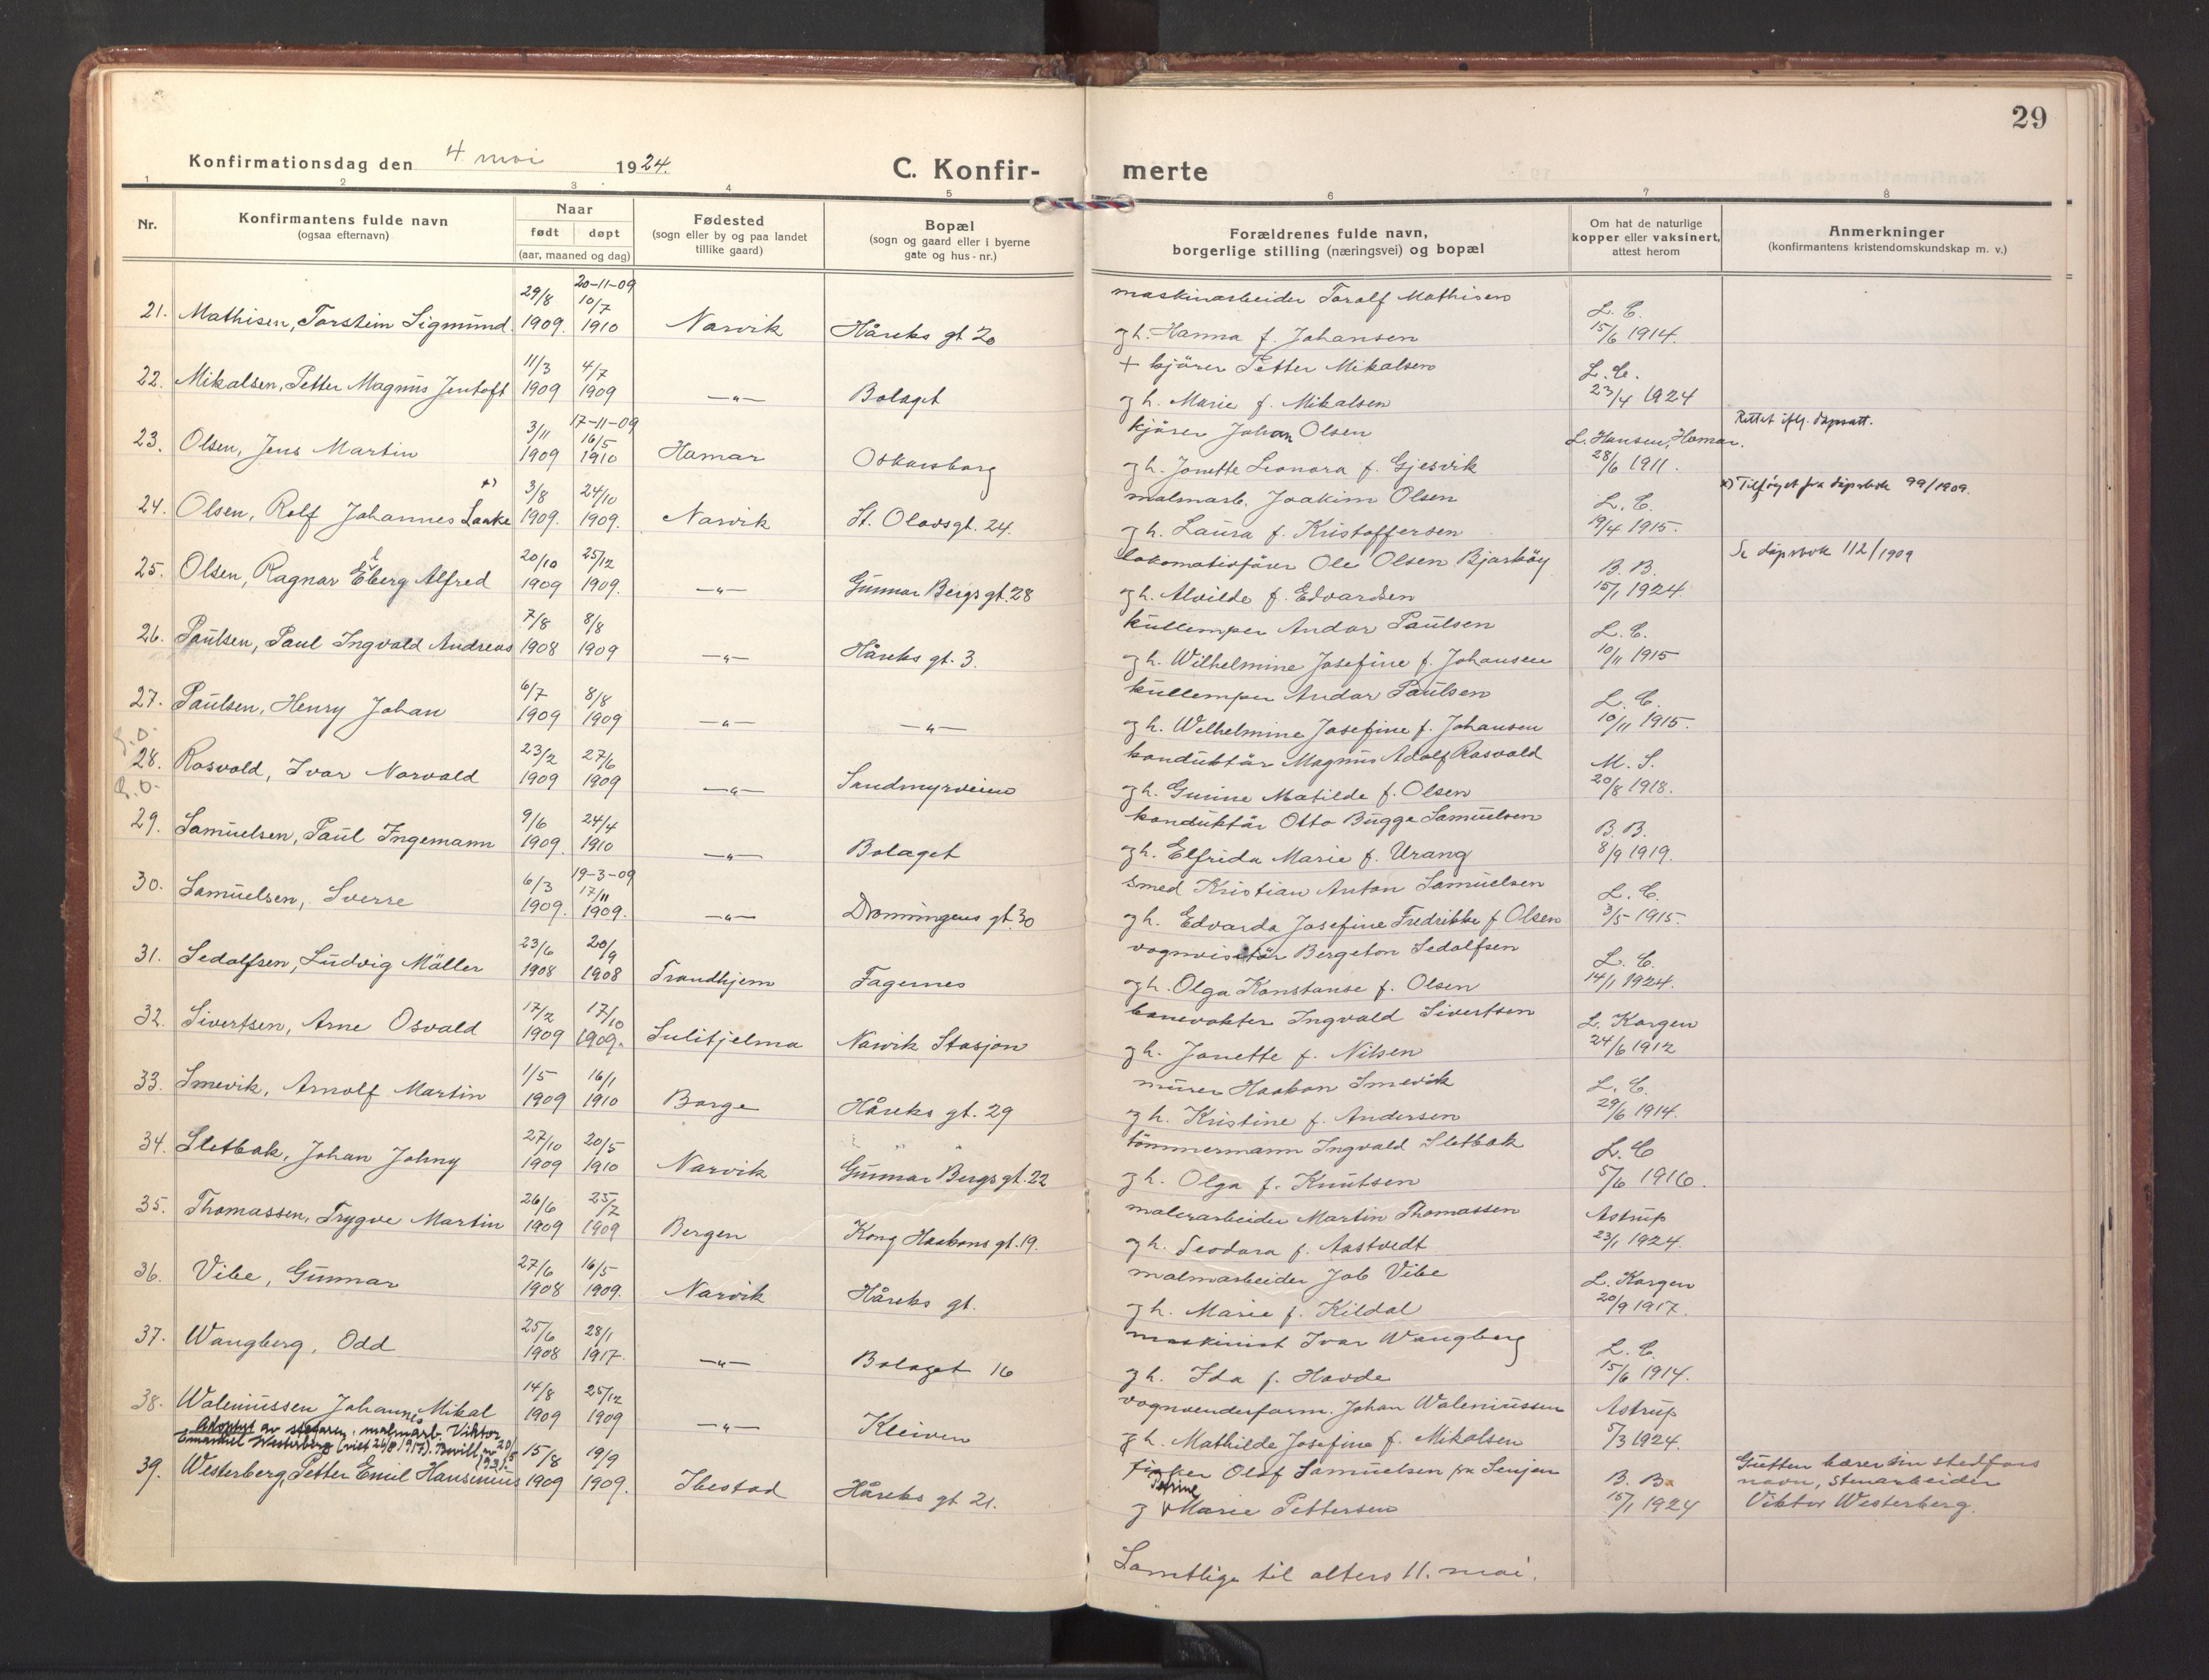 29
Konfirmationsdag den 4. mai 1924.
C. Konfir-
merte
1 2 3 4 5 6 7 8
Nr.
Konfirmantens fulde navn
(ogsaa efternavn)
Naar
født døpt
(aar, maaned og dag)
Fødested
(sogn eller by og paa landet
tillike gaard)
Bopæl
(sogn og gaard eller i byerne
gate og hus-nr.)
Forældrenes fulde navn,
borgerlige stilling (næringsvei) og bopæl
Om hat de naturlige
kopper eller vaksinert,
attest herom
Anmerkninger
(konfirmantens kristendomskundskap m. v.)
29/8 20-11-09 10/7 maskinarbeider Toralf Mathisen L. C.
21. Mathisen, Torstein Sigmund. 1909. 1910 Narvik Håreks gt 20 g h. Hanna f. Johansen 15/6 1914.
11/3 4/7 + kjører Petter Mikalsen L. C.
22. Mikalsen, Petter Magnus Jentoft 1909 1909 —„— Bolaget g h. Marie f. Mikalsen 23/4 1924
3/11 17-11-09 16/5 kjører Johan Olsen L. Hansen, Hamar. Rettet iflg. dåpsatt.
23. Olsen, Jens Martin 1909 1910 Hamar Oskarsborg g h. Jonette Leonora f. Gjesvik 28/6 1911.
x) 3/8 24/10 malmarb. Joakim Olsen L. C. x) Tilføyet fra dåpsbok 99/1909.
24. Olsen, Rolf Johannes Laake 1909. 1909. Narvik St. Olavsgt. 24. g h. Laura f. Kristoffersen 19/4 1915.
20/10 25/12 lokomotivfører Ole Olsen Bjarkøy B. B. Se dåpsbok 112/1909
25. Olsen, Ragnar Eberg Alfred 1909 1909. —„— Gunnar Bergs gt. 28 g h. Alvilde f. Edvardsen 15/1 1924.
7/8 8/8 kullemper Andor Paulsen L. C.
26. Paulsen, Paul Ingvald Andreas 1908 1909 —„— Håreks gt. 3. g h. Wilhelmine Josefine f. Johansen 10/11 1915
6/7 8/8 kullemper Andor Paulsen L. C.
27. Paulsen, Henry Johan 1909 1909 —„— —„— g h. Wilhelmine Josefine f. Johansen 10/11 1915.
23/2 27/6 konduktør Magnus Adolf Rosvold M. S.
28. Rosvold, Ivar Norvald 1909 1909 —„— Sandmyrveien g h. Gurine Matilde f. Olsen 20/8 1918.
9/6 24/4 konduktør Otto Bugge Samuelsen B. B.
29. Samuelsen, Paul Ingemann 1909. 1910 —„— Bolaget g h. Elfrida Marie f. Urang 8/9 1919.
6/3 19-3-09 17/11 smed Kristian Anton Samuelsen L. C.
30. Samuelsen, Sverre 1909. 1909. —„— Dronningens gt. 30 g h. Edvarda Josefine Fredrikke f Olsen 3/5 1915.
23/6 20/9 vognvisitør Bergeton Sedolfsen L. C.
31. Sedolfsen, Ludvig Møller 1908 1908 Trondhjem Fagernes g h. Olga Konstanse f. Olsen 14/1 1924.
17/2 17/10 banevokter Ingvald Sivertsen L. Korgen
32. Sivertsen, Arne Osvald 1909 1909. Sulitjelma Narvik Stasjon g h. Jonette f. Nilsen 24/6 1912
1/5 16/1 murer Haakon Smevik L. C.
33. Smevik, Arnolf Martin 1909 1910 Borge Håreks gt. 29 g h. Kristine f. Andersen 29/6 1914.
27/10 20/5 tømmermann Ingvald Sletbak L. C
34. Sletbak, Johan Johny 1909 1910 Narvik Gunnar Bergs gt. 22 g h. Olga f. Knutsen 5/6 1916.
26/6 25/2 malerarbeider Martin Thomassen Astrup
35. Thomassen, Trygve Martin 1909 1909 Bergen Kong Haakons gt. 19. g h. Teodora f. Aastvedt 23/1 1924.
27/6 16/5 malmarbeider Job Vibe L. Korgen
36. Vibe, Gunnar 1908 1909. Narvik Håreks gt. g h. Marie f. Kildal 20/9 1917.
25/6 28/1 maskinist Ivar Wangberg L. C.
37. Wangberg, Odd 1908 1917. —„— Bolaget 16 g h. Ida f. Hovde 15/6 1914.
14/8 25/12 vognvenderform. Johan Waleniussen Astrup
38. Waleniussen Johannes Mikal 1909 1909 —„— Kleiven g h. Mathilde Josefine f. Mikalsen 5/3 1924.
Adoptert av stefaren, malmarb. Viktor
Emanuel Westerberg (viet 26/8 1917). Bevill. av 20/5 1931.
15/8 19/9 fisker Olaf Samuelsen fra Senjen B. B. Gutten bærer sin stedfars
39. Westerberg, Petter Emil Hansinius 1909 1909. Ibestad Håreks gt 21. g Petrine Marie Pettersen 15/1 1924 navn, stenarbeider
Viktor Westerberg.
Samtlige til alters 11. mai.